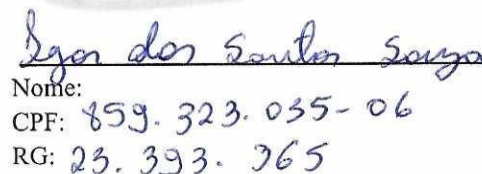 Igor dos Santos Souza
Nome:
CPF: 859.323.035-06
RG: 23.393.365